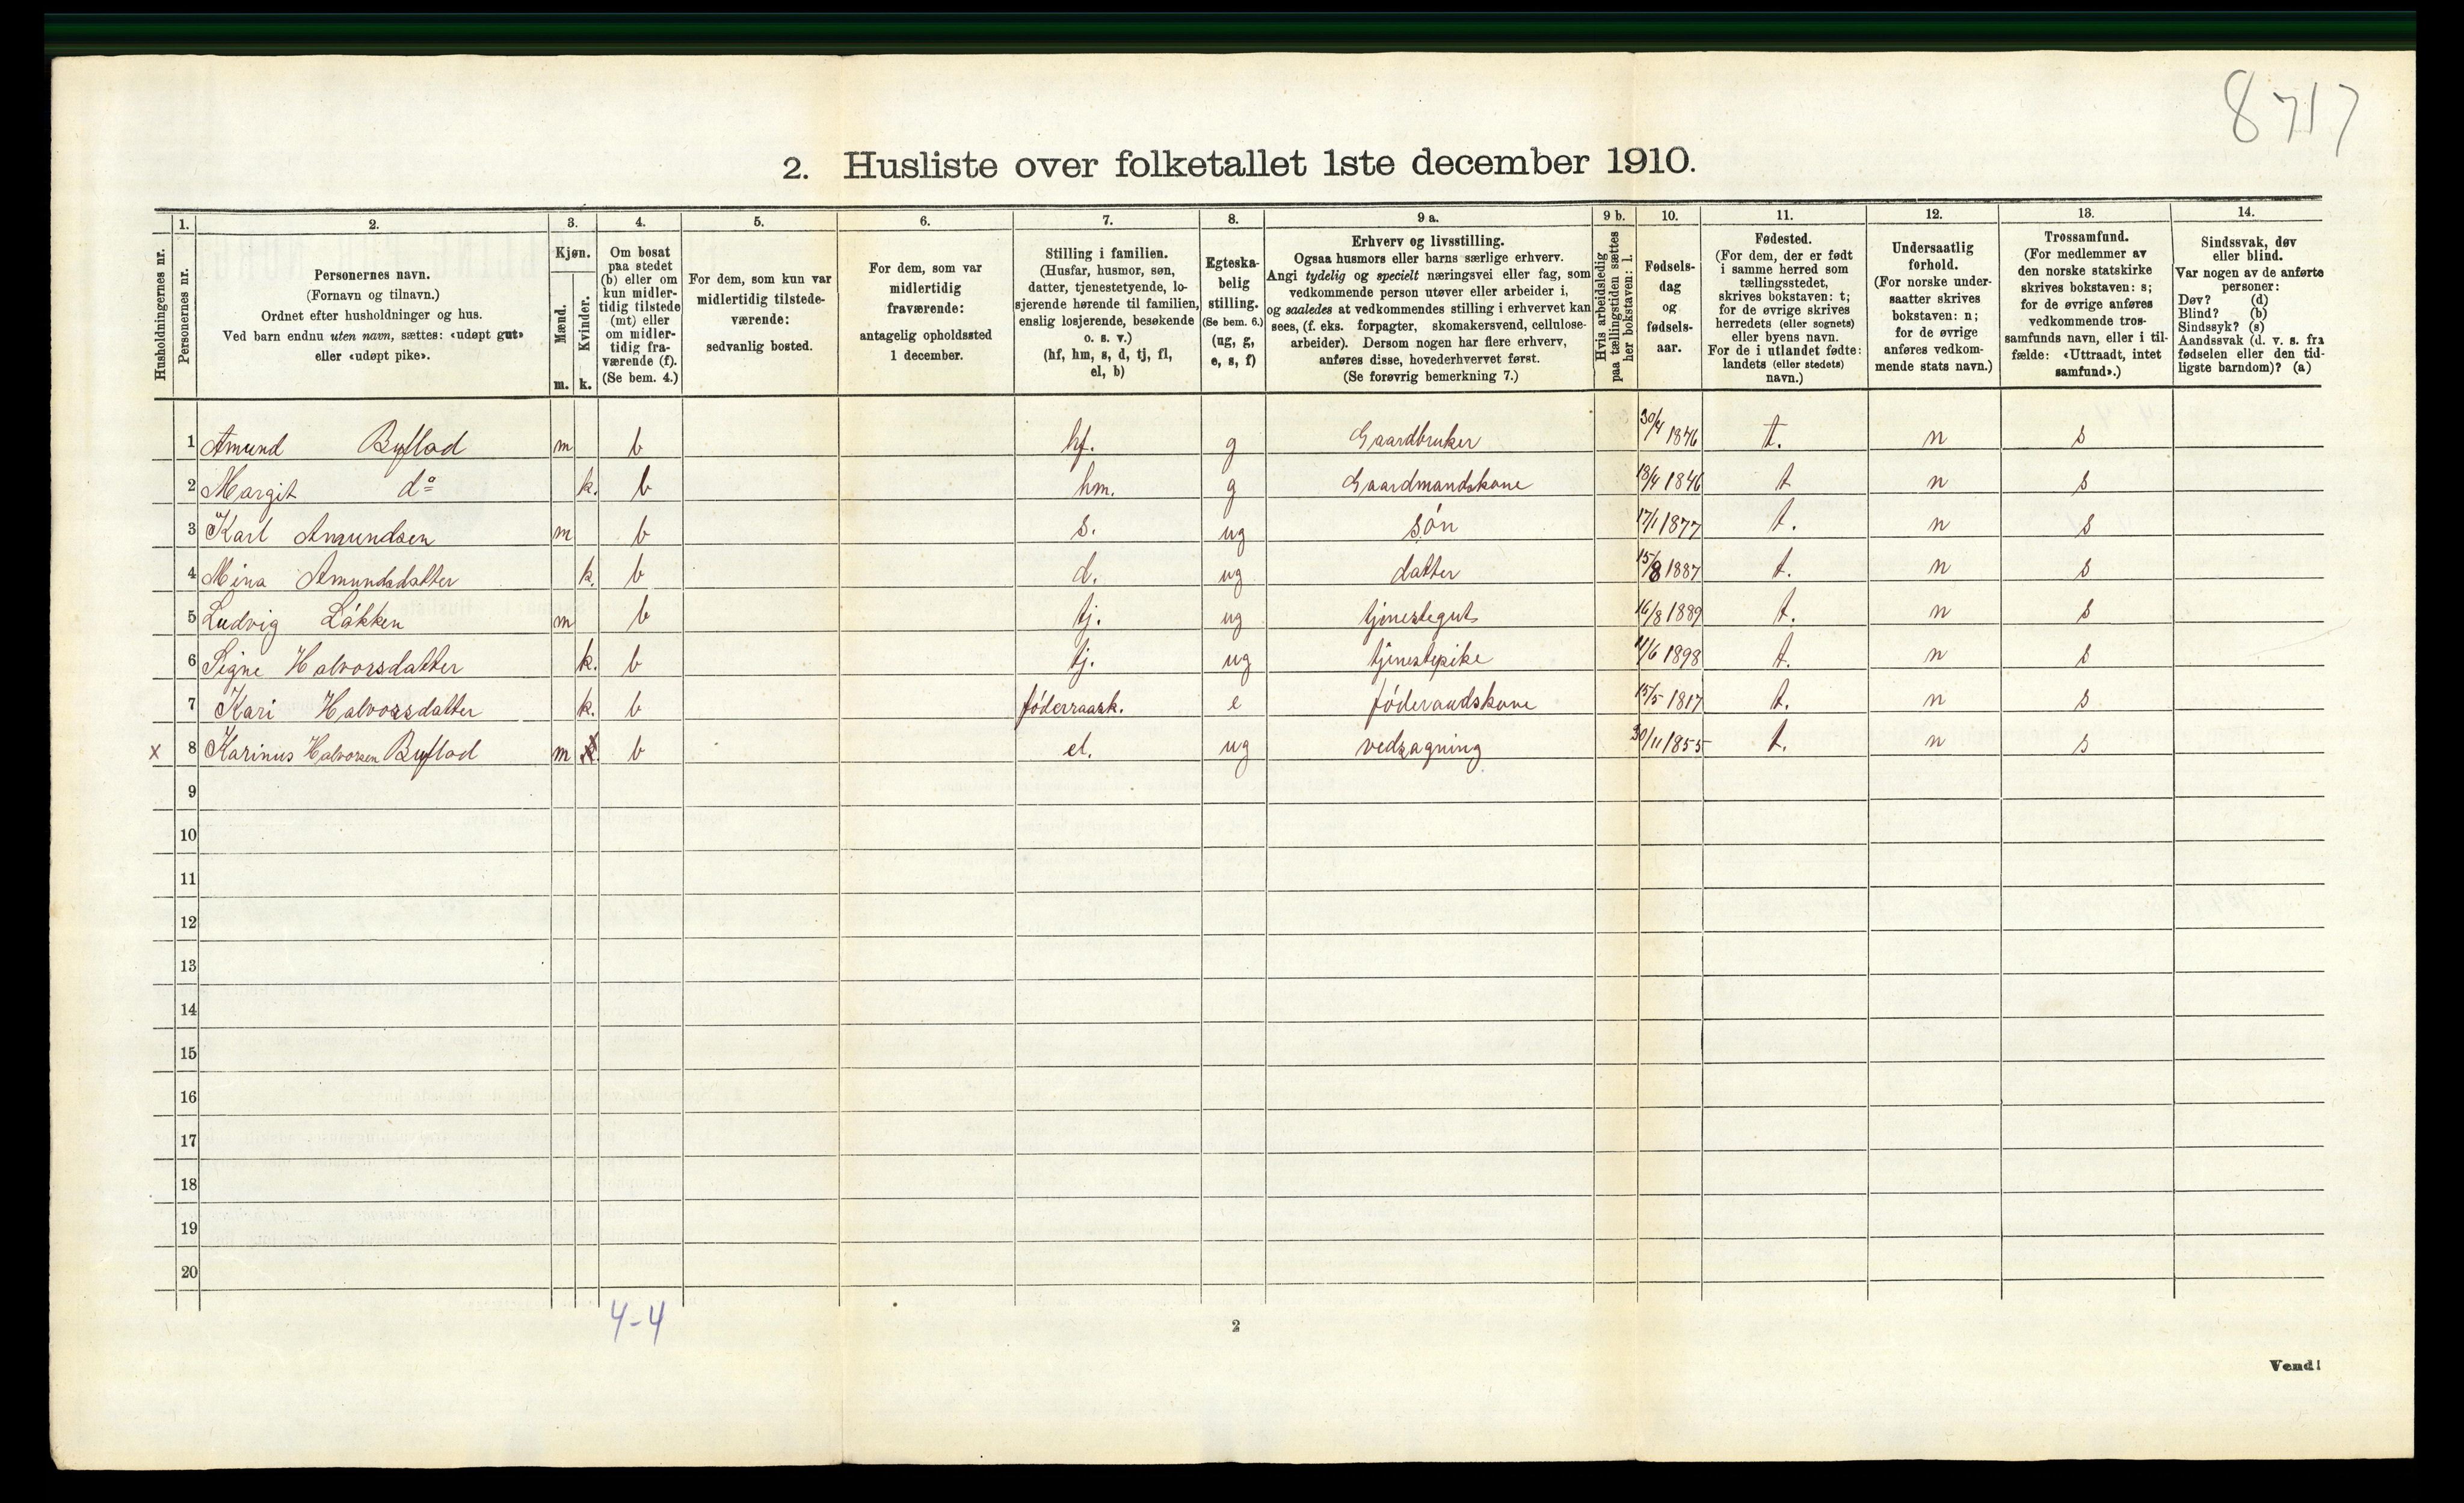 8717
2. Husliste over folketallet 1ste december 1910.
1. 2. 3. 4. 5. 6. 7. 8. 9 a. 9 b. 10. 11. 12. 13. 14.
Husholdningernes nr.
Personernes nr.
Personernes navn.
(Fornavn og tilnavn.)
Ordnet efter husholdninger og hus.
Ved barn endnu uten navn, sættes: «udøpt gut»
eller «udøpt pike».
Kjøn.
Mænd.
m.
Kvinder.
k.
Om bosat
paa stedet
(b) eller om
kun midler-
tidig tilstede
(mt) eller
om midler-
tidig fra-
værende (f).
(Se bem. 4.)
For dem, som kun var
midlertidig tilstede-
værende:
sedvanlig bosted.
For dem, som var
midlertidig
fraværende:
antagelig opholdssted
1 december.
Stilling i familien.
(Husfar, husmor, søn,
datter, tjenestetyende, lo-
sjerende hørende til familien,
enslig losjerende, besøkende
o. s. v.)
(hf, hm, s, d, tj, fl,
el, b)
Egteska-
belig
stilling.
(Se bem. 6.)
(ug, g,
e, s, f)
Erhverv og livsstilling.
Ogsaa husmors eller barns særlige erhverv.
Angi tydelig og specielt næringsvei eller fag, som
vedkommende person utøver eller arbeider i,
og saaledes at vedkommendes stilling i erhvervet kan
sees, (f. eks. forpagter, skomakersvend, cellulose-
arbeider). Dersom nogen har flere erhverv,
anføres disse, hovederhvervet først.
(Se forøvrig bemerkning 7.)
Hvis arbeidsledig
paa tællingstiden sættes
her bokstaven: l.
Fødsels-
dag
og
fødsels-
aar.
Fødested.
(For dem, der er født
i samme herred som
tællingsstedet,
skrives bokstaven: t;
for de øvrige skrives
herredets (eller sognets)
eller byens navn.
For de i utlandet fødte:
landets (eller stedets)
navn.)
Undersaatlig
forhold.
(For norske under-
saatter skrives
bokstaven: n;
for de øvrige
anføres vedkom-
mende stats navn.)
Trossamfund.
(For medlemmer av
den norske statskirke
skrives bokstaven: s;
for de øvrige anføres
vedkommende tros-
samfunds navn, eller i til-
fælde: «Uttraadt, intet
samfund».)
Sindssvak, døv
eller blind.
Var nogen av de anførte
personer:
Døv? (d)
Blind? (b)
Sindssyk? (s)
Aandssvak (d. v. s. fra
fødselen eller den tid-
ligste barndom)? (a)
1 Amund Byflad m b hf. g Gaardbruker 30/4 1846 t. n s
2 Margit do k. b hm. g Gaardmandskone 18/4 1846 t n s
3 Karl Amundsen m b s. ug søn 17/1 1877 t. n s
4 Mina Amundsdatter k. b d. ug datter 15/8 1887 t. n s
5 Ludvig Løkken m b tj. ug tjenestegut 16/8 1889 t. n s
6 Signe Halvorsdatter k. b tj. ug tjenestepike /6 1898 t. n s
7 Kari Halvorsdatter k. b føderraadsk. e føderaadskone 15/5 1817 t. n s
x 8 Karinus Halvorsen Byflad m k. b el. ug vedsagning 30/11 1855 t. n s
9
10
11
12
13
14
15
16
17
18
19
20
4-4
2
Vend!